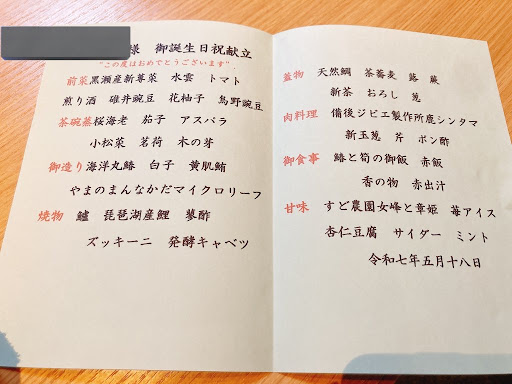 様 御誕生日祝献立
"この度はおめでとうございます"
前菜 黒瀬産新蓴菜 水雲 トマト
煎り酒 碓井豌豆 花柚子 烏野豌豆
茶碗蒸 桜海老 茄子 アスパラ
小松菜 茗荷 木の芽
御造り 海洋丸鰆 白子 黄肌鮪
やまのまんなかだマイクロリーフ
焼物 鱸 琵琶湖産鯉 蓼酢
ズッキーニ 発酵キャベツ
蓋物 天然鯛 茶蕎麦 蕗 蕨
新茶 おろし 葱
肉料理 備後ジビエ製作所鹿シンタマ
新玉葱 芹 ポン酢
御食事 鰆と筍の御飯 赤飯
香の物 赤出汁
甘味 すど農園女峰と章姫 苺アイス
杏仁豆腐 サイダー ミント
令和七年五月十八日